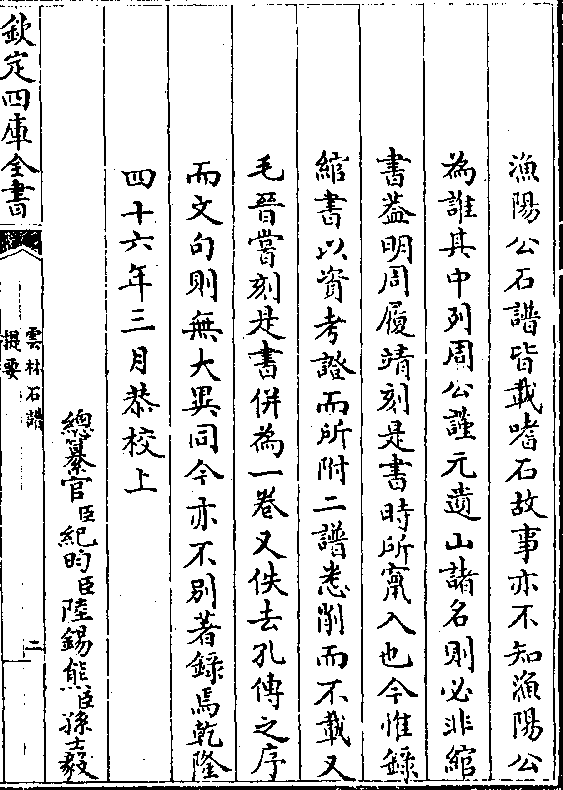 漁陽公石譜皆載嗜石故事亦不知漁陽公
為誰其中列周公謹元遺山諸名則必非綰
書葢明周履靖刻是書時所竄入也今惟錄
綰書以資考證而所附二譜悉削而不載又
毛晉嘗刻是書併為一卷又佚去孔傳之序
而文句則無大異同今亦不別著錄焉乾隆
四十六年三月恭校上
總纂官臣紀昀臣陸錫熊臣孫士毅
欽定四庫全書
雲林石譜
提要
二